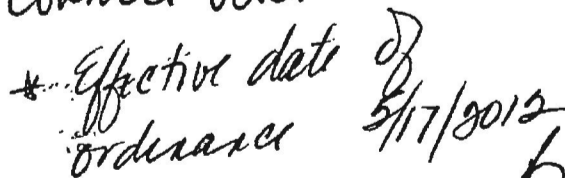 * Effective date of
ordinance 5/17/2012